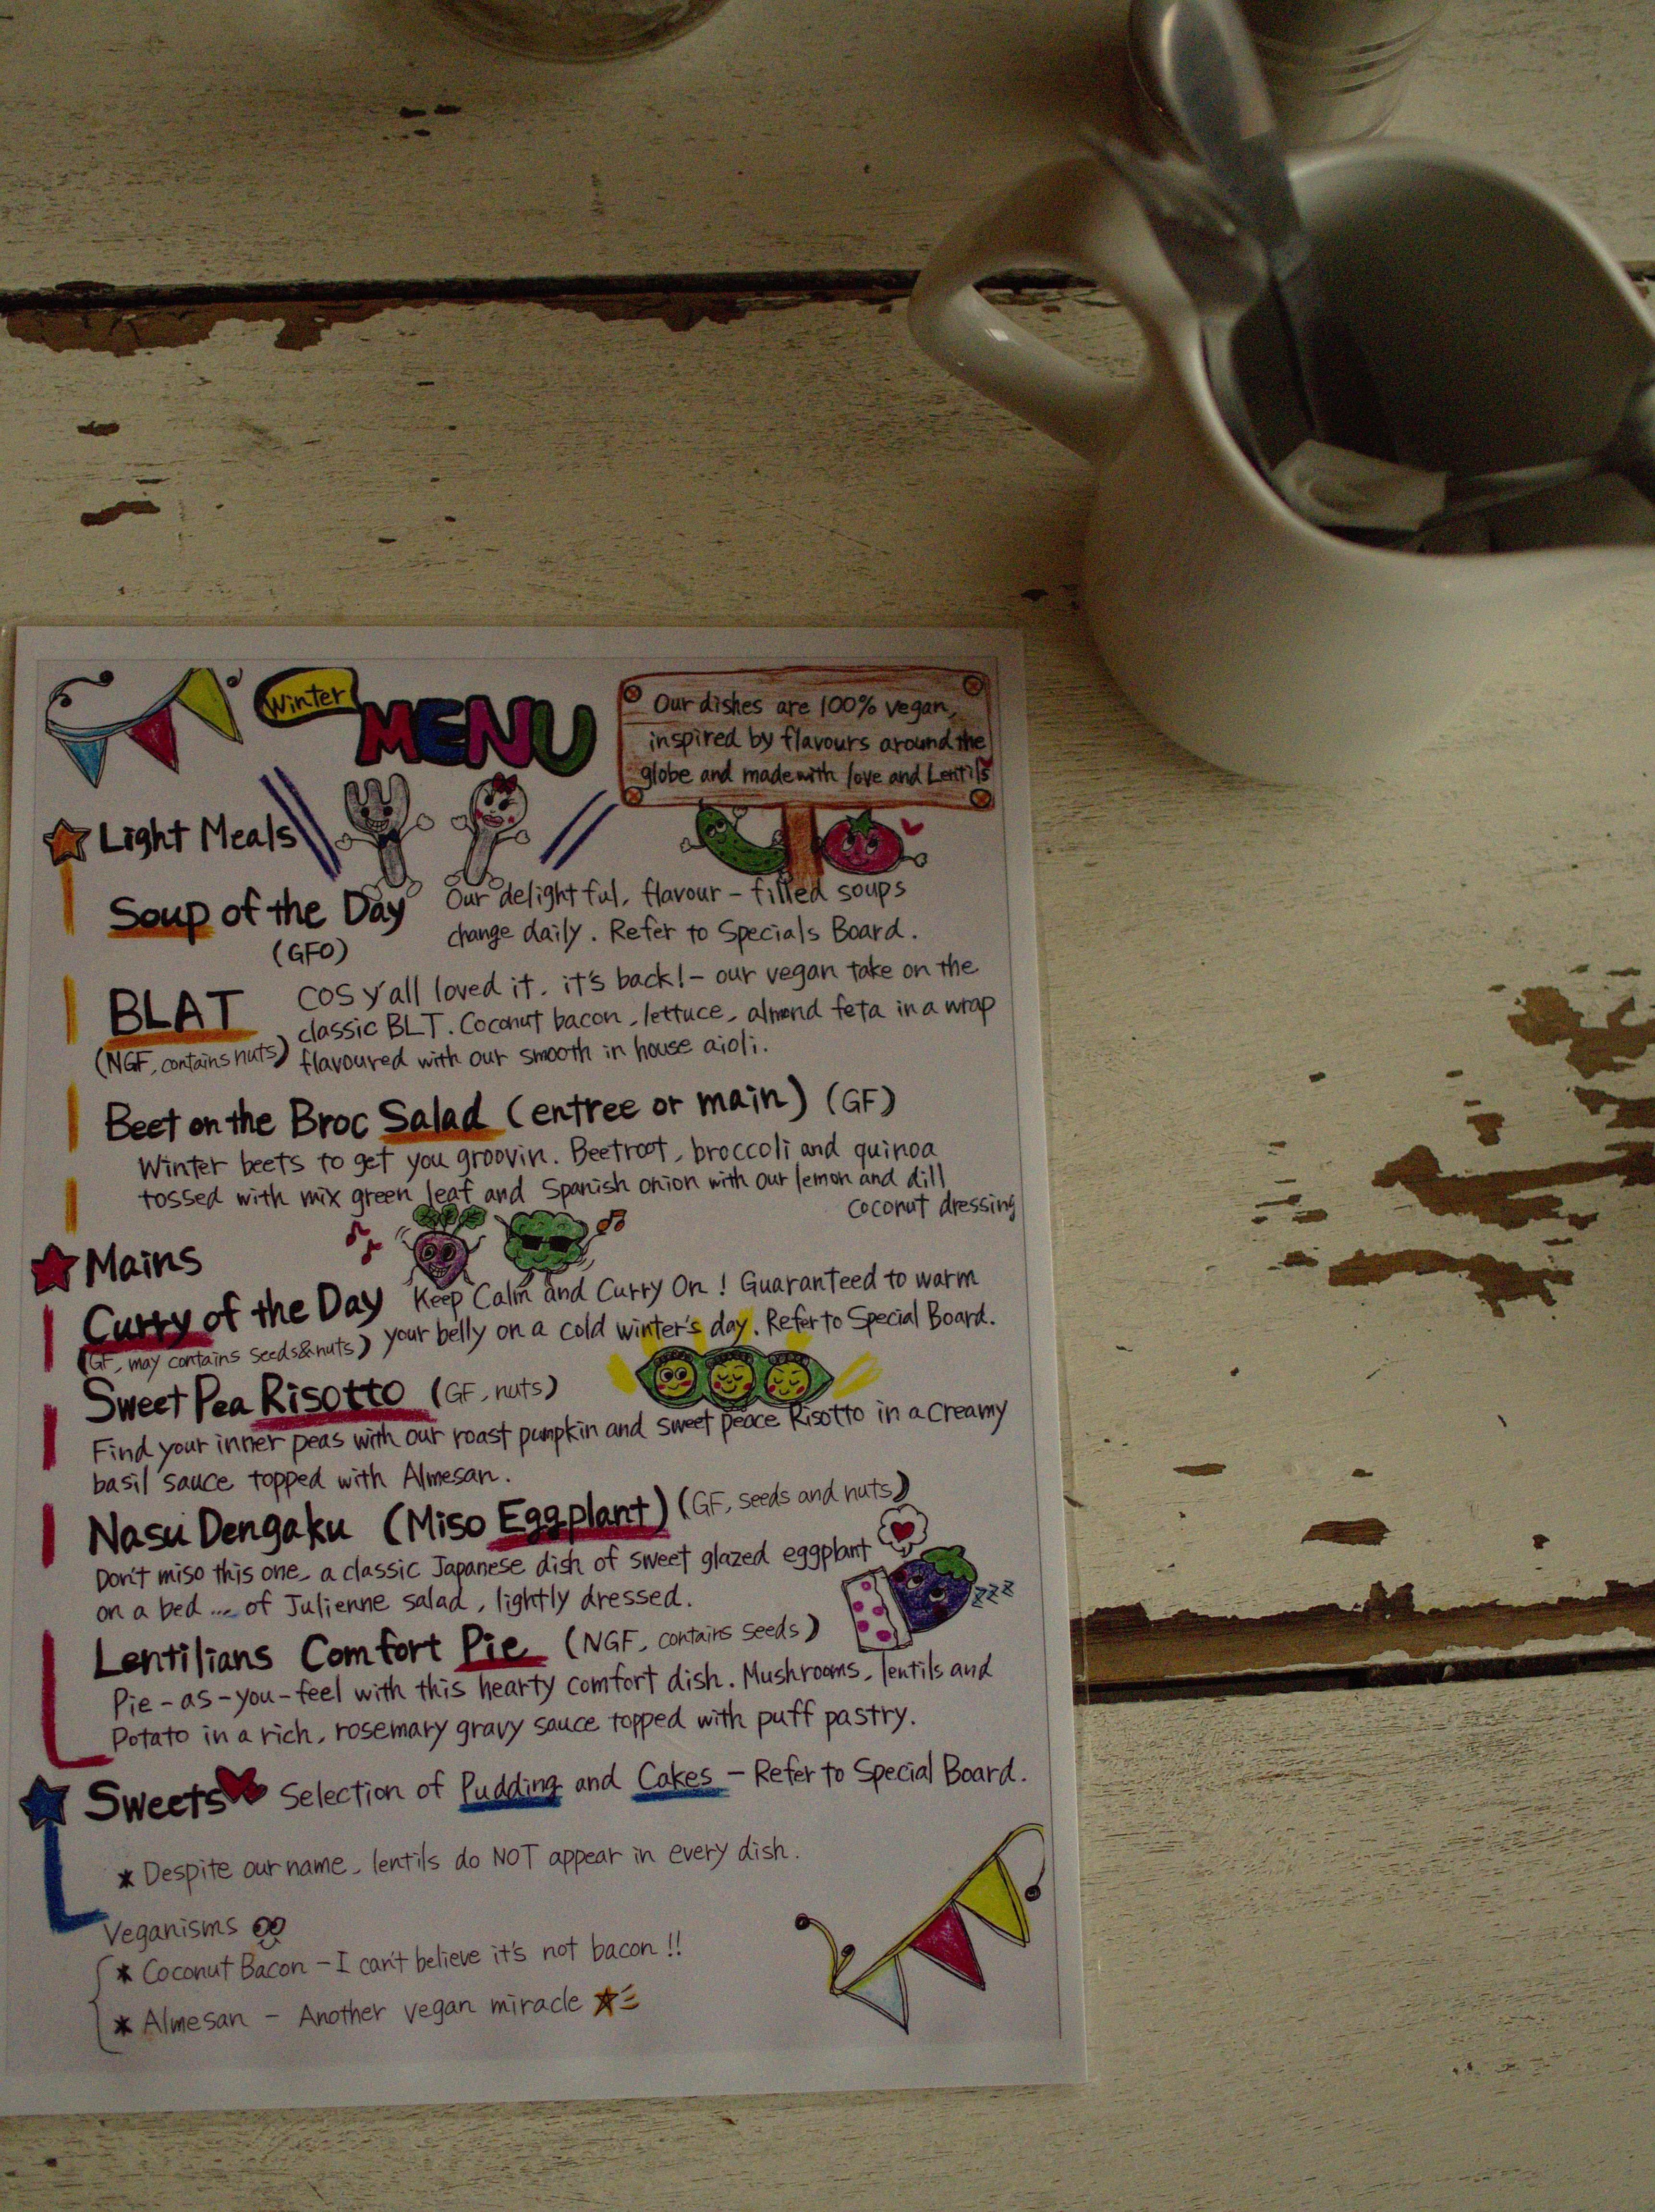 Winter MENU
Our dishes are 100% vegan,
inspired by flavours around the
globe and made with love and Lentils
Light Meals
Soup of the Day
(GFO)
Our delightful, flavour - filled soups
change daily. Refer to Specials Board.
BLAT
(NGF, contains nuts)
COS y'all loved it, it's back! - our vegan take on the
classic BLT. Coconut bacon, lettuce, almond feta in a wrap
flavoured with our smooth in house aioli.
Beet on the Broc Salad (entree or main) (GF)
Winter beets to get you groovin. Beetroot, broccoli and quinoa
tossed with mix green leaf and Spanish onion with our lemon and dill
coconut dressing
Mains
Curry of the Day
(GF, may contains seeds&nuts)
Keep Calm and Curry On! Guaranteed to warm
your belly on a cold winter's day. Refer to Special Board.
Sweet Pea Risotto (GF, nuts)
Find your inner peas with our roast pumpkin and sweet peace Risotto in a creamy
basil sauce topped with Almesan.
Nasu Dengaku (Miso Eggplant) (GF, seeds and nuts)
Don't miso this one, a classic Japanese dish of sweet glazed eggplant
on a bed ... of Julienne salad, lightly dressed.
zzz
Lentilians Comfort Pie (NGF, contains seeds)
Pie-as-you-feel with this hearty comfort dish. Mushrooms, lentils and
Potato in a rich, rosemary gravy sauce topped with puff pastry.
Sweets Selection of Pudding and Cakes - Refer to Special Board.
* Despite our name, lentils do NOT appear in every dish.
Veganisms
* Coconut Bacon - I can't believe it's not bacon!!
* Almesan - Another vegan miracle